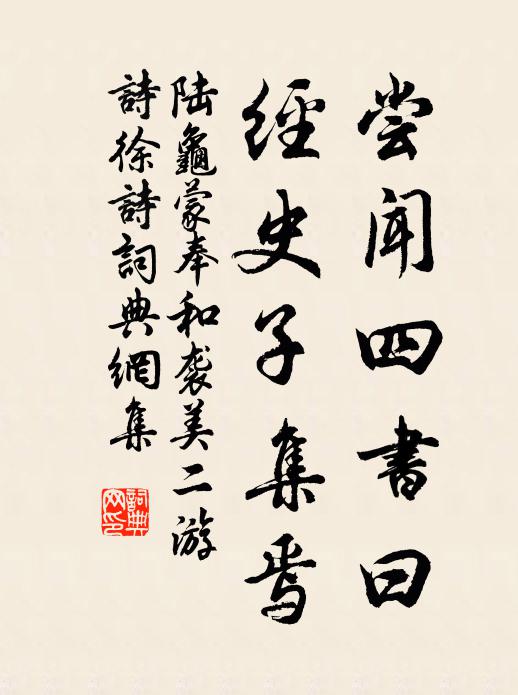 尝闻四书曰
經史子集焉
陆龜蒙奉和袭美二游
詩徐詩詞典網集
詞典网印